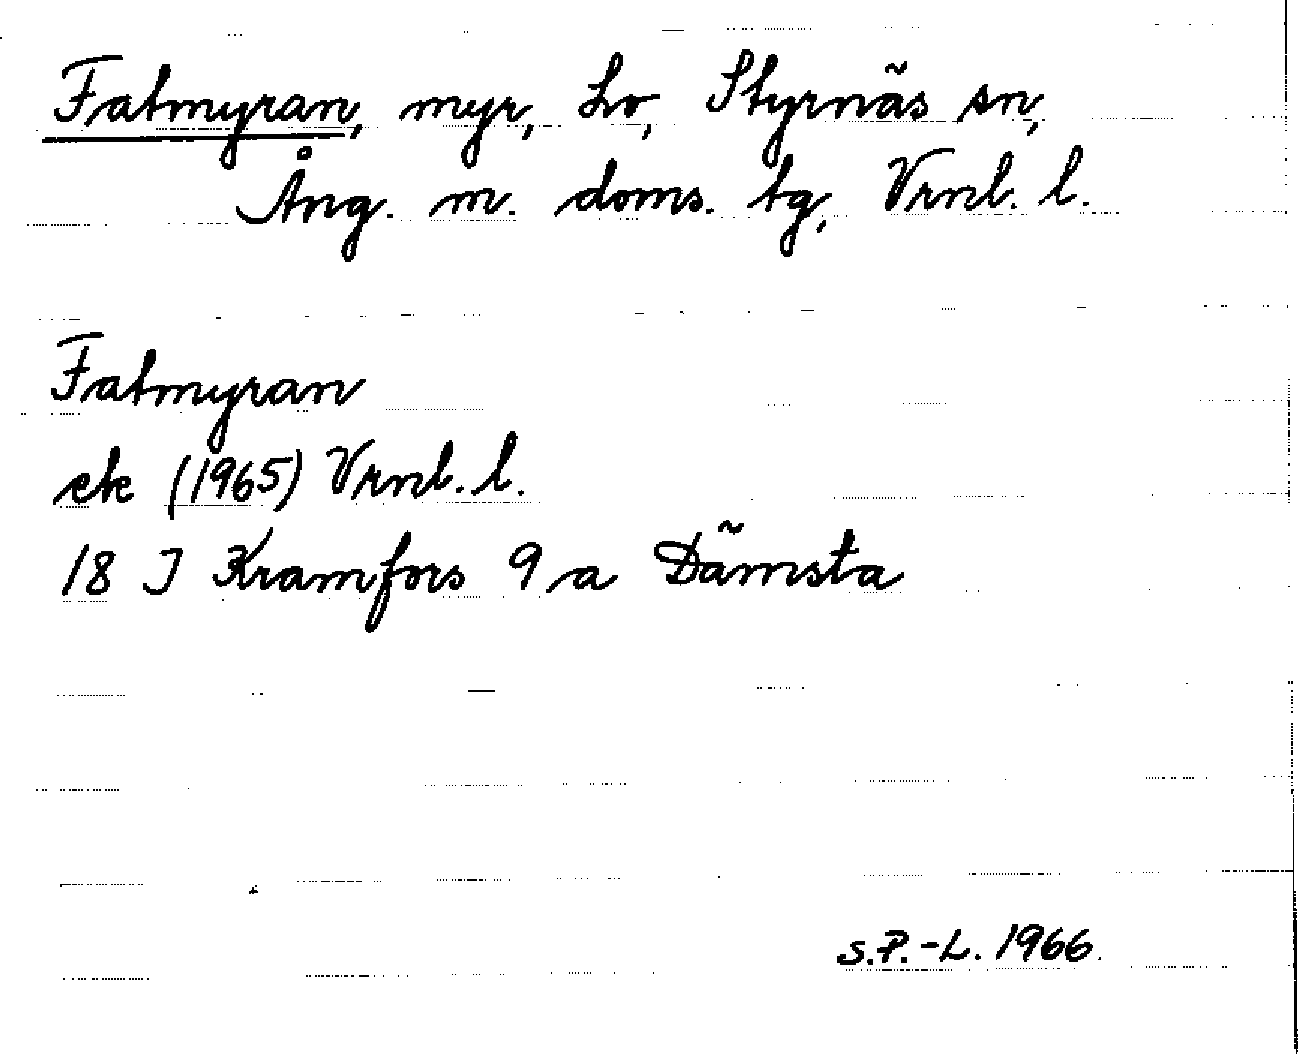 Fatmyran, myr, Lo, Styrnäs sn,
Ång. m. doms. tg, Vrnl. l.
Fatmyran
ek (1965) Vrnl. l.
18 J Kramfors 9 a Dämsta
S.P.-L. 1966.